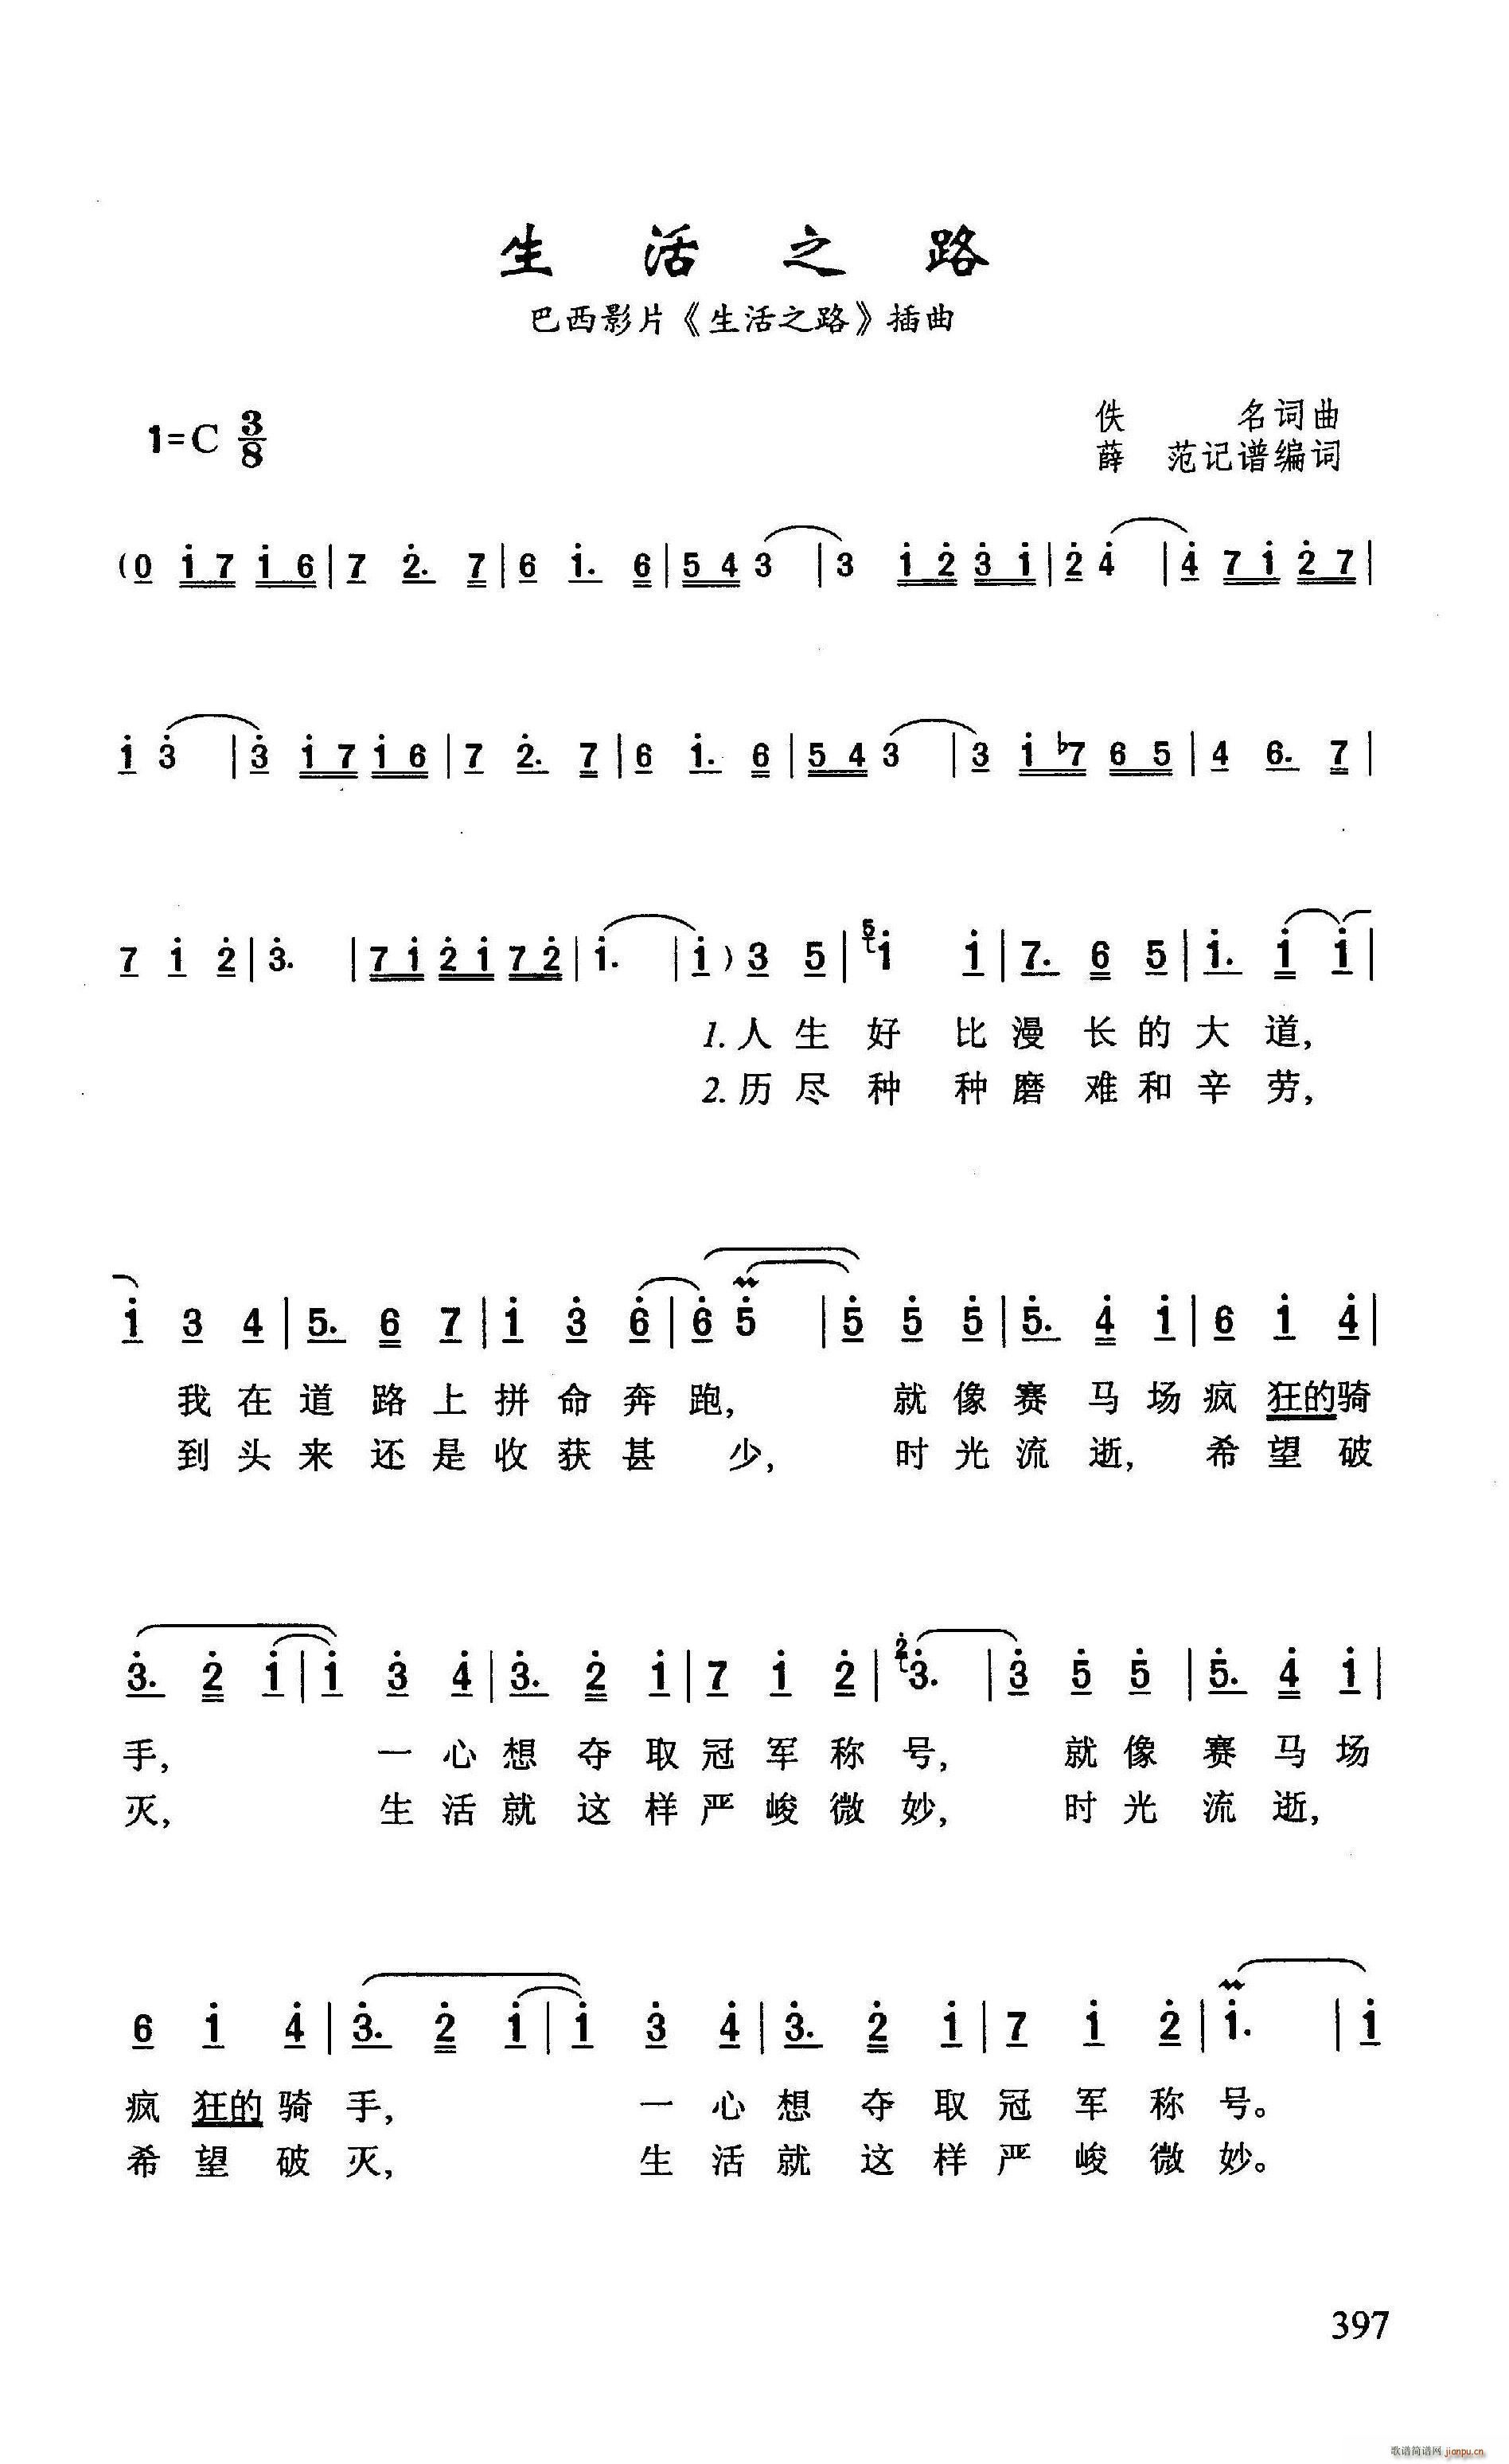 生 活 之 路
巴西影片《生活之路》插曲
1=C 3/8
佚 名词曲
薛 范记谱编词
(0 i 7 i 6 | 7 2. 7 | 6 i. 6 | 5 4 3 | 3 i 2 3 i | 2 4 | 4 7 i 2 7 |
i 3 | 3 i 7 i 6 | 7 2. 7 | 6 i. 6 | 5 4 3 | 3 i ♭7 6 5 | 4 6. 7 |
7 i 2 | 3. | 7 i 2 i 7 2 | i. | i ) 3 5 | 5 i i | 7. 6 5 | i. i i |
1. 人 生 好 比 漫 长 的 大 道,
2. 历 尽 种 种 磨 难 和 辛 劳,
i 3 4 | 5. 6 7 | i 3 6 | 6 5 | 5 5 5 | 5. 4 i | 6 i 4 |
我 在 道 路 上 拼 命 奔 跑, 就 像 赛 马 场 疯 狂的骑
到 头 来 还 是 收 获 甚 少, 时 光 流 逝, 希 望 破
3. 2 i | i 3 4 | 3. 2 i | 7 i 2 | 2 3. | 3 5 5 | 5. 4 i |
手, 一 心 想 夺 取 冠 军 称 号, 就 像 赛 马 场
灭, 生 活 就 这 样 严 峻 微 妙, 时 光 流 逝,
6 i 4 | 3. 2 i | i 3 4 | 3. 2 i | 7 i 2 | i. | i
疯 狂的 骑 手, 一 心 想 夺 取 冠 军 称 号。
希 望 破 灭, 生 活 就 这 样 严 峻 微 妙。
397
歌谱简谱网 jianpu.cn